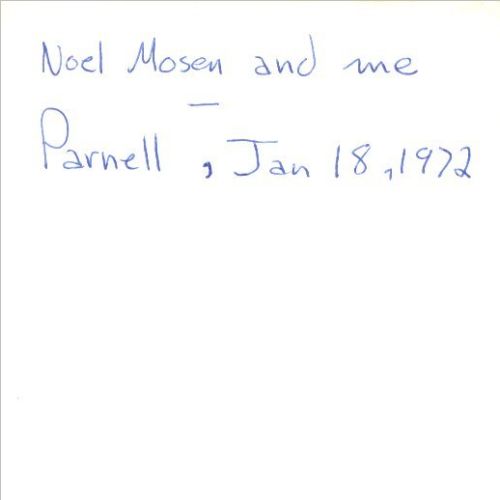 Noel Mosen and me
—
Parnell, Jan 18, 1972